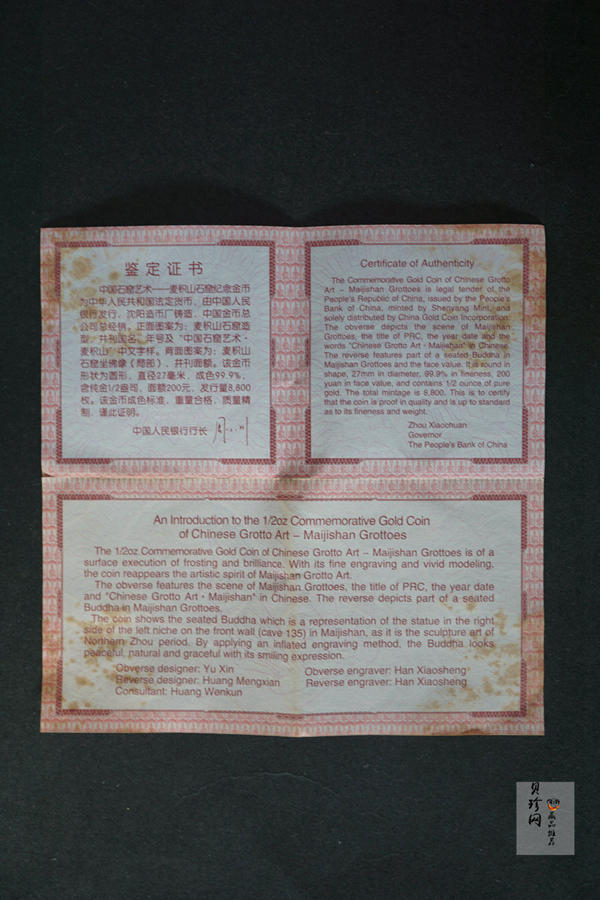 鉴定证书
中国石窟艺术——麦积山石窟纪念金币
为中华人民共和国法定货币，由中国人民
银行发行，沈阳造币厂铸造，中国金币总
公司总经销。正面图案为：麦积山石窟造
型，并刊国名、年号及“中国石窟艺术·
麦积山”中文字样。背面图案为：麦积山
石窟坐佛像（局部），并刊面额。该金币
形状为圆形，直径27毫米，成色99.9%，
含纯金1/2盎司，面额200元，发行量8,800
枚。该金币成色标准，重量合格，质量精
制，谨此证明。
中国人民银行行长
Certificate of Authenticity
The Commemorative Gold Coin of Chinese Grotto
Art – Maijishan Grottoes is legal tender of the
People's Republic of China, issued by the People's
Bank of China, minted by Shenyang Mint, and
solely distributed by China Gold Coin Incorporation.
The obverse depicts the scene of Maijishan
Grottoes, the title of PRC, the year date and the
words "Chinese Grotto Art · Maijishan" in Chinese.
The reverse features part of a seated Buddha in
Maijishan Grottoes and the face value. It is round in
shape, 27mm in diameter, 99.9% in fineness, 200
yuan in face value, and contains 1/2 ounce of pure
gold. The total mintage is 8,800. This is to certify
that the coin is proof in quality and is up to standard
as to its fineness and weight.
Zhou Xiaochuan
Governor
The People's Bank of China
An Introduction to the 1/2oz Commemorative Gold Coin
of Chinese Grotto Art – Maijishan Grottoes
The 1/2oz Commemorative Gold Coin of Chinese Grotto Art – Maijishan Grottoes is of a
surface execution of frosting and brilliance. With its fine engraving and vivid modeling,
the coin reappears the artistic spirit of Maijishan Grotto Art.
The obverse features the scene of Maijishan Grottoes, the title of PRC, the year date
and "Chinese Grotto Art · Maijishan" in Chinese. The reverse depicts part of a seated
Buddha in Maijishan Grottoes.
The coin shows the seated Buddha which is a representation of the statue in the right
side of the left niche on the front wall (cave 135) in Maijishan, as it is the sculpture art of
Northern Zhou period. By applying an inflated engraving method, the Buddha looks
peaceful, natural and graceful with its smiling expression.
Obverse designer: Yu Xin
Reverse designer: Huang Mengxian
Consultant: Huang Wenkun
Obverse engraver: Han Xiaosheng
Reverse engraver: Han Xiaosheng
贝珍网
藏品推荐